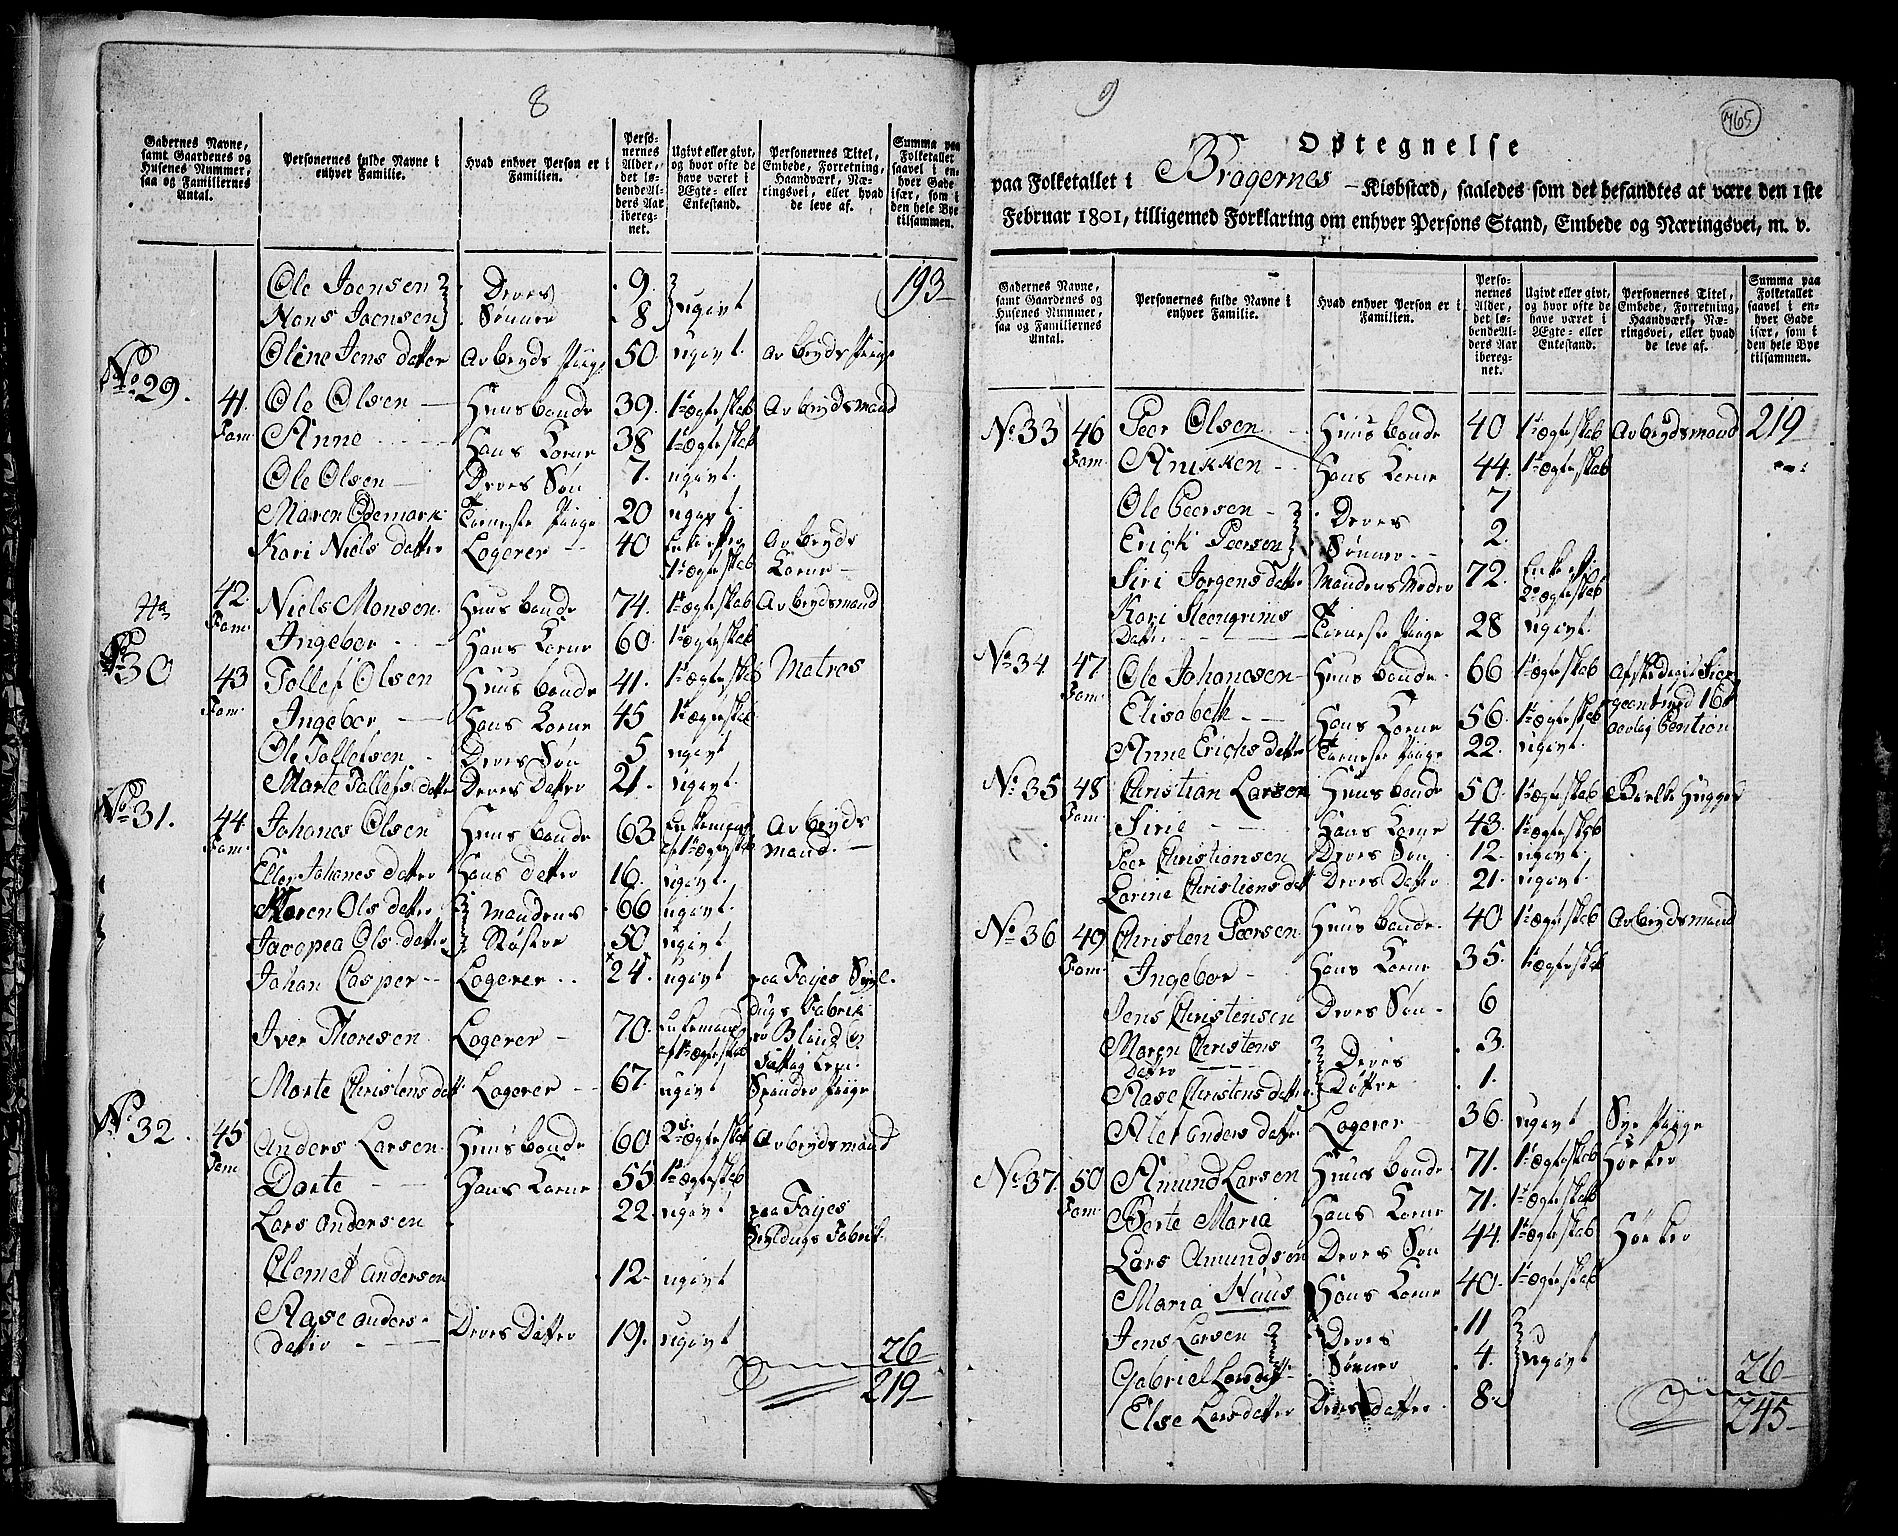 8
Gadernes Navne,
samt Gaardenes og
Husenes Nummer,
saa og Familiernes
Antal.
Personernes fulde Navne i
enhver Familie.
Hvad enhver Person er i
Familien.
Perso-
nernes
Alder,
det lø-
bende Al-
ders Aar
ibereg-
net.
Ugivt eller givt,
og hvor ofte de
have været i
Ægte- eller
Enkestand.
Personernes Titel,
Embede, Forretning,
Haandværk, Næ-
ringsvei, eller hvad
de leve af.
Summa paa
Folketallet
saavel i en-
hver Gade
især, som i
den hele Bye
tilsammen.
Ole Joensen Deres 9. ugivt 193
Hans Joensen Sønner 8
Oline Jens datter Arbeyds Piige 50 ugivt. Arbeyds Piige
No 29. 41. Fam. Ole Olsen Huusbonde 39. 1te Ægteskab Arbeydsmand
Anne Hans Kone 38 1te Ægteskab
Ole Olsen Deres Søn 7. ugivt.
Maren Odemark Tieneste Piige 20 ugivt.
Kari Niels datter Logerer 40 Enke efter Arbeyds
1te Ægteskab Kone
42. Fam. Niels Monsen Huusbonde 74. 1te Ægteskab Arbeydsmand
Ingebor Hans Kone 60. 1te Ægteskab
No 30 43 Fam. Tollef Olsen Huusbonde 41. 1te Ægteskab Matros
Ingebor Hans Kone 45 1te Ægteskab
Ole Tollefsen Deres Søn 5 ugivt
Marte Tollefs datter Deres Datter 21. ugivt.
No 31. 44. Fam. Johanes Olsen Huusbonde 63 Enkemand Arbeyds
af 1te Ægteskab mand.
Ellen Johanes datter Hans datter 16. ugivt.
Maren Ols datter Mandens 66 ugivt.
Jacopea Ols datter Søstre 50 ugivt
Johan Casper Logerer 24. ugivt paa Fayes Seyl
dugs Fabrik
Iver Thoresen Logerer 70. Enkemand er Blind og
af 1te Ægteskab Fattig Lem.
Marte Christens datt. Logerer 67. ugivt Spinder Piige
No 32. 45 Fam. Anders Larsen Huusbonde 60 2det Ægteskab Arbeydsmand
Dorte Hans Kone 55 1te Ægteskab
Lars Andersen 22. ugivt paa Fayes
Seyldugs Fabrik.
Clemet Andersen 12 ugivt
Aase Anders-
datter Deres Datter 19. ugivt
26
219
9
465
Optegnelse
paa Folketallet i Bragernes Kiøbstæd, saaledes som det befandtes at være den 1ste
Februar 1801, tilligemed Forklaring om enhver Persons Stand, Embede og Næringsvei, m. v.
Gadernes Navne,
samt Gaardenes og
Husenes Nummer,
saa og Familiernes
Antal.
Personernes fulde Navne i
enhver Familie.
Hvad enhver Person er i
Familien.
Perso-
nernes
Alder,
det lø-
bende Al-
ders Aar
ibereg-
net.
Ugivt eller givt,
og hvor ofte de
have været i
Ægte- eller
Enkestand.
Personernes Titel,
Embede, Forretning,
Haandværk, Næ-
ringsvei, eller hvad
de leve af.
Summa paa
Folketallet
saavel i en-
hver Gade
især, som i
den hele Bye
tilsammen.
No 33 46 Fam. Peer Olsen Huusbonde 40 1te Ægteskab Arbeydsmand 219
Anikken Hans Kone 44. 1te Ægteskab
Ole Peersen Deres 7
Erick Peersen Sønner 2.
Siri Jorgens datter Mandens Moder 72. Enke efter
2det Ægteskab
Kari Steengrims
Datter Tieneste Piige 28 ugivt.
No 34 47 Fam. Ole Johanesen Huusbonde 66 1te Ægteskab Afskediget Sier
geant med 16
Elisabeth Hans Kone 56. 1te Ægteskab aarlig Pention
Anne Erichs datter Tieneste Piige 22. ugivt.
No 35 48 Fam. Christian Larsen Huusbonde 50. 1te Ægteskab Bielke Hugger
Sirie Hans Kone 43. 1te Ægteskab
Peer Christiansen Deres Søn 12. ugivt.
Larine Christians datt. Deres Datter 21. ugivt.
No 36 49 Fam. Christen Peersen Huusbonde 40 1te Ægteskab Arbeydsmand
Ingebor Hans Kone 35. 1te Ægteskab
Jens Christensen Deres Søn 6
Maren Christens
datter Deres 3.
Aase Christens datter Døttre 1.
Alet Anders datter Logerer 36. ugivt Sye Piige
No 37. 50 Fam. Amund Larsen Huusbonde 71. 1te Ægteskab Høeker
Berte Maria Hans Kone 71. 1te Ægteskab
Lars Amundsøn Deres Søn 44. 1te Ægteskab Høeker
Maria Huus Hans Kone 40. 1te Ægteskab
Jens Larsen Deres 11
Gabriel Larsen Sønner 4. ugivt
Else Larsdatter Deres datter 8.
26
245